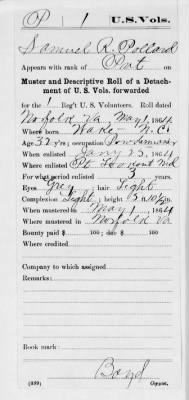 P | 1 | U.S. Vols.
Samuel R. Pollard
Appears with rank of Pvt on
Muster and Descriptive Roll of a Detach-
ment of U. S. Vols. forwarded
for the 1 Reg't U. S. Volunteers. Roll dated
Norfolk Va, May 1, 1864.
Where born Wade N.C.
Age 32 y'rs; occupation
When enlisted Jany 23, 1864.
Where enlisted Pt Lookout Md
For what period enlisted 3 years.
Eyes Grey; hair Light
Complexion Light; height 5 ft. 10 1/2 in.
When mustered in May 1, 1864.
Where mustered in Norfolk Va
Bounty paid $ 100; due $ 100
Where credited
Company to which assigned
Remarks:
Book mark:
Boyd
(339) Copyist.